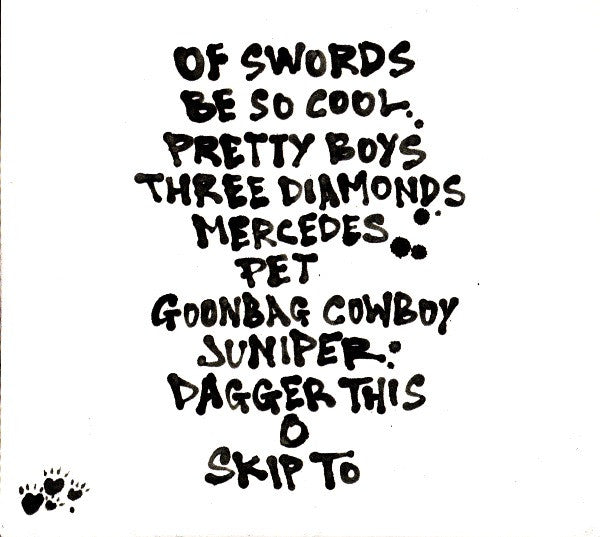 OF SWORDS
BE SO COOL
PRETTY BOYS
THREE DIAMONDS
MERCEDES
PET
GOONBAG COWBOY
JUNIPER:
DAGGER THIS
O
SKIP TO